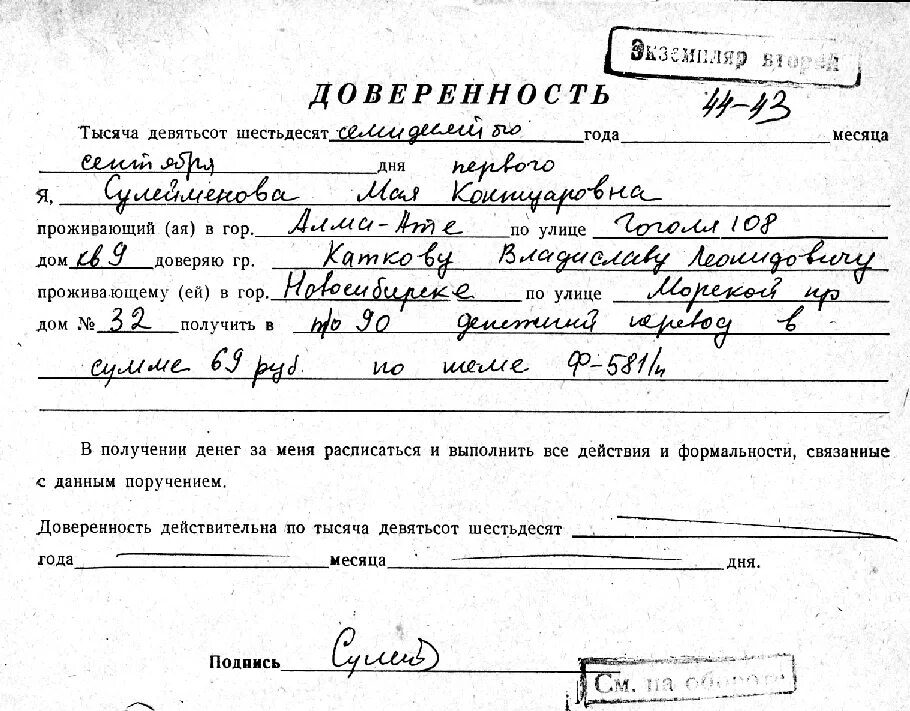 Экземпляр второй
ДОВЕРЕННОСТЬ
44-43
Тысяча девятьсот шестьдесят семидесятого года месяца
сентября дня первого
Я, Сулейменова Мая Контуаровна
проживающий (ая) в гор. Алма-Ате по улице Гоголя 108
дом кв 9 доверяю гр. Каткову Владиславу Леонидовичу
проживающему (ей) в гор. Новосибирске по улице Морской пр
дом № 32 получить в п/о 90 денежный перевод в
сумме 69 руб. по теме Ф-581/и
В получении денег за меня расписаться и выполнить все действия и формальности, связанные
с данным поручением.
Доверенность действительна по тысяча девятьсот шестьдесят
года месяца дня.
Подпись Сулей
См. на обороте